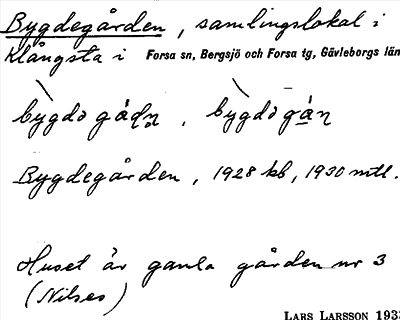 Bygdegården, samlingslokal i
Klångsta i Forsa sn, Bergsjö och Forsa tg, Gävleborgs län
Bygdegården, 1928 kb, 1930 mtl.
Huset är gamla gården nr 3
(Nilses)
LARS LARSSON 1933